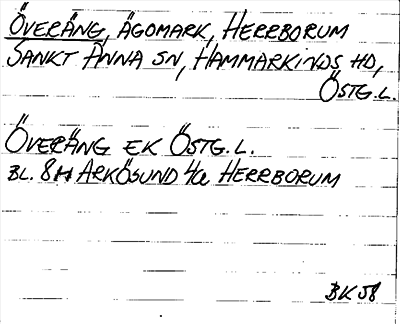 ÖVERÄNG, ÄGOMARK, HERRBORUM
SANKT ANNA SN, HAMMARKINDS HD,
ÖSTG.L.
ÖVERÄNG EK ÖSTG.L.
BL. 8H ARKÖSUND 4a HERRBORUM
BK 58